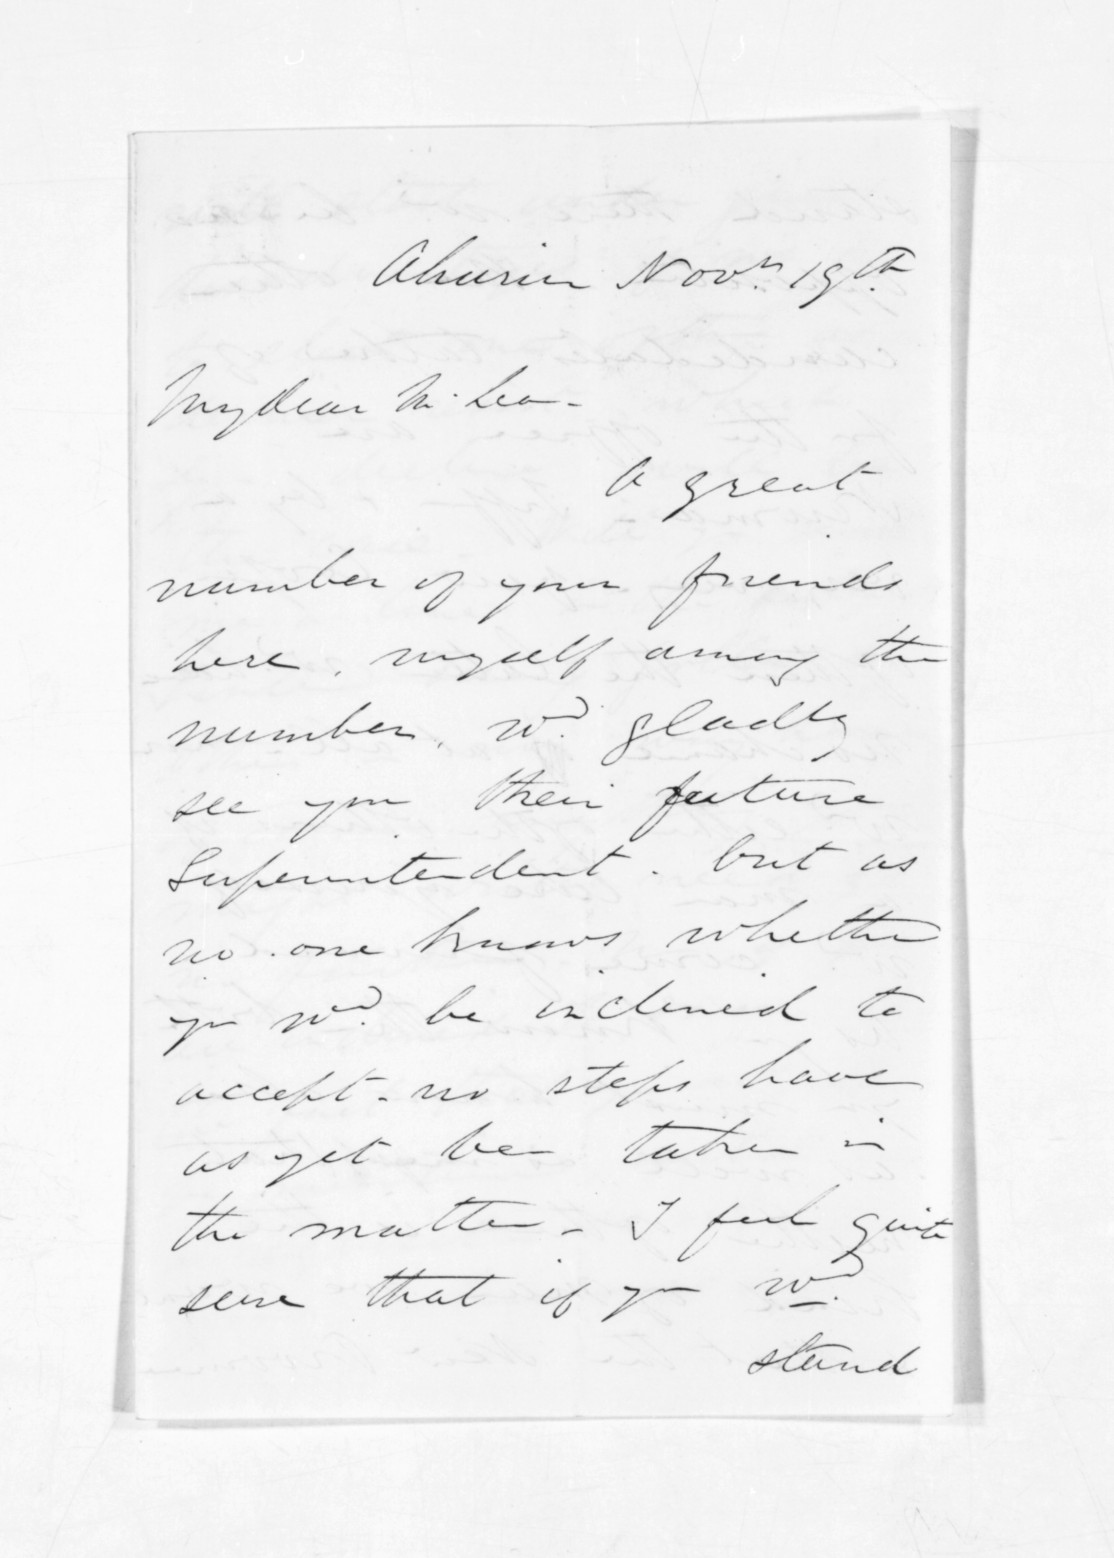 Ahuriri Novr. 19th.
My dear McLean -
A great
number of your friends
here, myself among the
number, wd. gladly
see you their future
Superintendent. but as
no. one knows whether
you wd. be inclined to
accept - no steps have
as yet been taken in
the matter - I feel quite
sure that if you wd.
stand